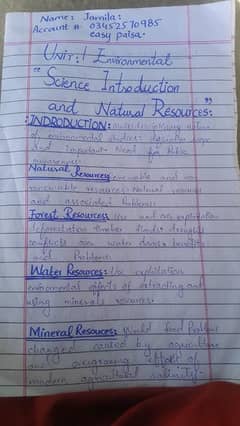 Name: Jamila:
Account # 03452570985
easy paisa.
Unit:1 Environmental
"Science Introduction
and Natural Resources:"
:INDRODUCTION: multidisciplinary nature
of environmental studies: definition scope
and important Need for Public
awareness:
Natural Resources: renewable and non
renewable resources: Natural resources
and associated Problems:
Forest Resources: Use and over exploitation
deforestation timber floods droughts
conflicts over water dams benefits
and Problems:
Water Resources: Use exploitation
environmental effects of extracting and
using minerals resources:
Mineral Resouces: World food Problems
changed caused by agriculture
and overgrazing effect of
modern agricultural salinity:-